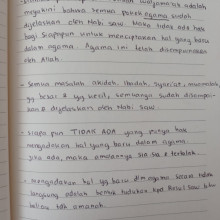 meyakini bahwa semua pokok agama sudah
dijelaskan oleh Nabi saw. Maka tidak ada hak
bagi siapapun untuk menciptakan hal yang baru
dalam agama. Agama ini telah disempurnakan
oleh Allah.
- Semua masalah akidah, ibadah, syariat, muamalah
yg besar & yg kecil, semuanya sudah disampai-
kan & dijelaskan oleh Nabi saw.
- siapa pun TIDAK ADA yang punya hak
mengadakan hal yang baru dalam agama.
Jika ada, maka amalannya sia-sia & tertolak.
- mengadakan hal yg baru dlm agama secara tidak
langsung adalah bentuk tuduhan kpd Rasul saw bhw
beliau tdk amanah.